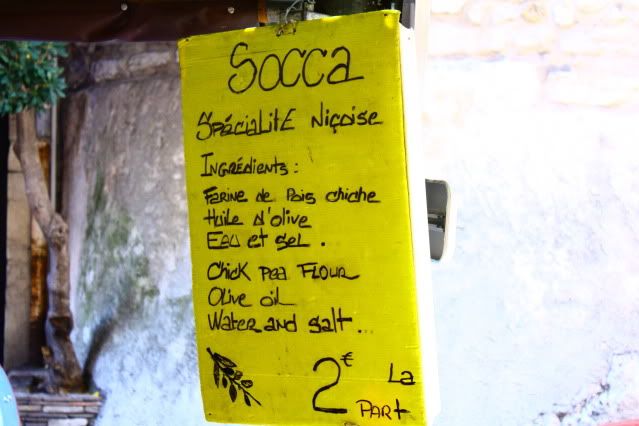 Socca
Spécialité Niçoise
Ingrédients :
Farine de Pois chiche
Huile d'olive
Eau et sel .
Chick pea Flour
Olive oil
Water and salt ...
2€ La
Part